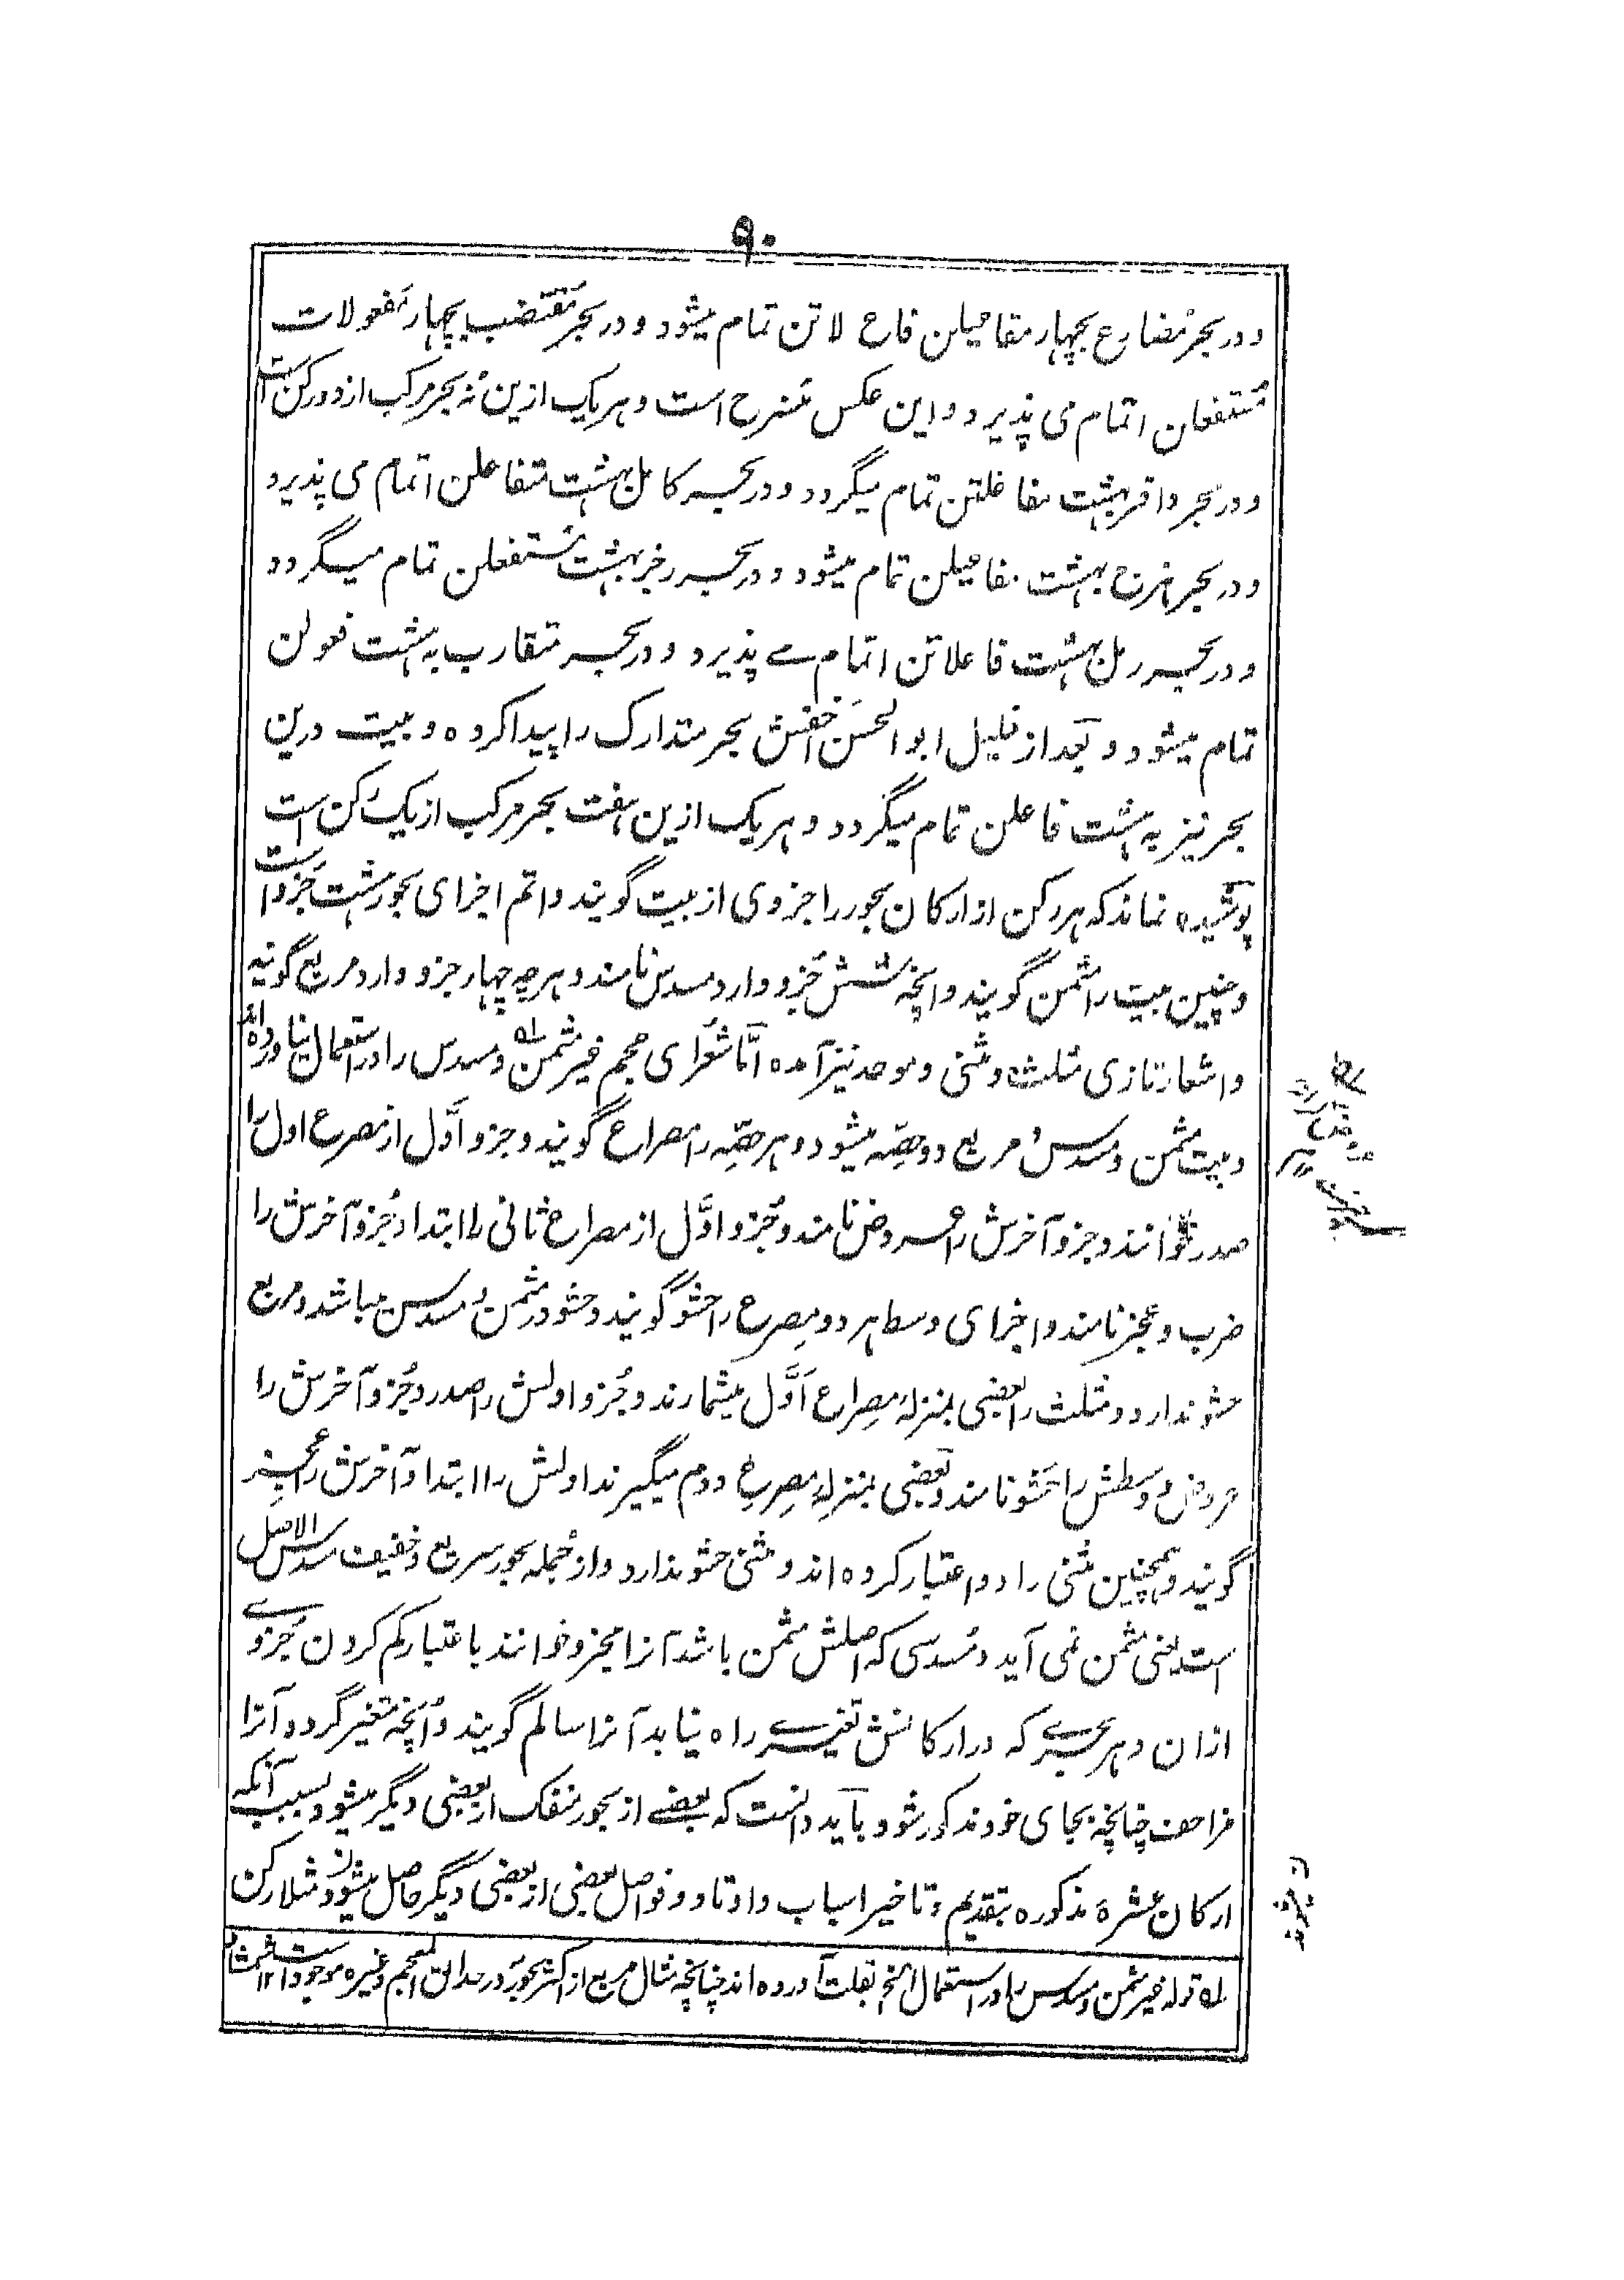 ۹۰
و در بحر مضارع بچهار مفاعیلن فاع لاتن تمام میشود و در بحر مقتضب بچهار مفعولات
مستفعلن اتمام می پذیرد و این عکس منسرح است و هر یک ازین نه بحر مرکب از دو رکن است
و در بحر وافر بهشت مفاعلتن تمام میگردد و در بحر کامل بهشت متفاعلن اتمام می پذیرد
و در بحر هزج بهشت مفاعیلن تمام میشود و در بحر رجز بهشت مستفعلن تمام میگردد
و در بحر رمل بهشت فاعلاتن اتمام مے پذیرد و در بحر متقارب به هشت فعولن
تمام میشود و بعد از خلیل ابو الحسن اخفش بحر متدارک را پیدا کرده و بیت درین
بحر نیز به هشت فاعلن تمام میگردد و هر یک ازین هفت بحر مرکب از یک رکن است
پوشیده نماند که هر رکن از ارکان بحور را جزوی از بیت گویند و اتم اجزای بحور هشت جزو است
و چنین بیت را مثمن گویند و انچه شش جزو دارد مسدس نامند و هر چه چهار جزو دارد مربع گویند
و اشعار تازی مثلث و مثنی و موحد نیز آمده امّا شعرای عجم غیر مثمن له و مسدس را در استعمال نیاورده اند
و بیت مثمن و مسدس و مربع دو حصّه میشود و هر حصّه را مصراع گویند و جزو اوّل از مصرع اول را
صدر خوانند و جزو آخرش را عروض نامند و جزو اوّل از مصراع ثانی را ابتدا و جزو آخرش را
ضرب و عجز نامند و اجزای وسط هر دو مصرع را حشو گویند و حشو در مثمن و مسدس میباشد و مربع
حشو ندارد و مثلث را بعضی بمنزلۀ مصراع اوّل میشمارند و جزو اولش را صدر و جزو آخرش را
عروض و وسطش را حشو نامند و بعضی بمنزلۀ مصرع دوم میگیرند اولش را ابتدا و آخرش را عجز
گویند و همچنین مثنی را دو اعتبار کرده اند و مثنی حشو ندارد و از جمله بحور سریع و خفیف مسدس الاصل
است یعنی مثمن نمی آید و مسدسی که اصلش مثمن باشد آنرا مجزو خوانند باعتبار کم کردن جزوے
ازان و هر بحرے که در ارکانش تغیرے راه نیابد آنرا سالم گویند و انچه متغیر گردد آنرا
مزاحف چنانچه بجای خود مذکور شود باید دانست که بعضے از بحور منفک از بعضی دیگر میشود بسبب آنکه
ارکان عشرۀ مذکوره بتقدیم و تاخیر اسباب و اوتاد و فواصل بعضی از بعضی دیگر حاصل میشود مثلا رکن
له قوله غیر مثمن و مسدس را در استعمال الخ بقلت آورده اند چنانچه مثال مربع از اکثر بحور در حدائق العجم وغیره موجود است ۱۲